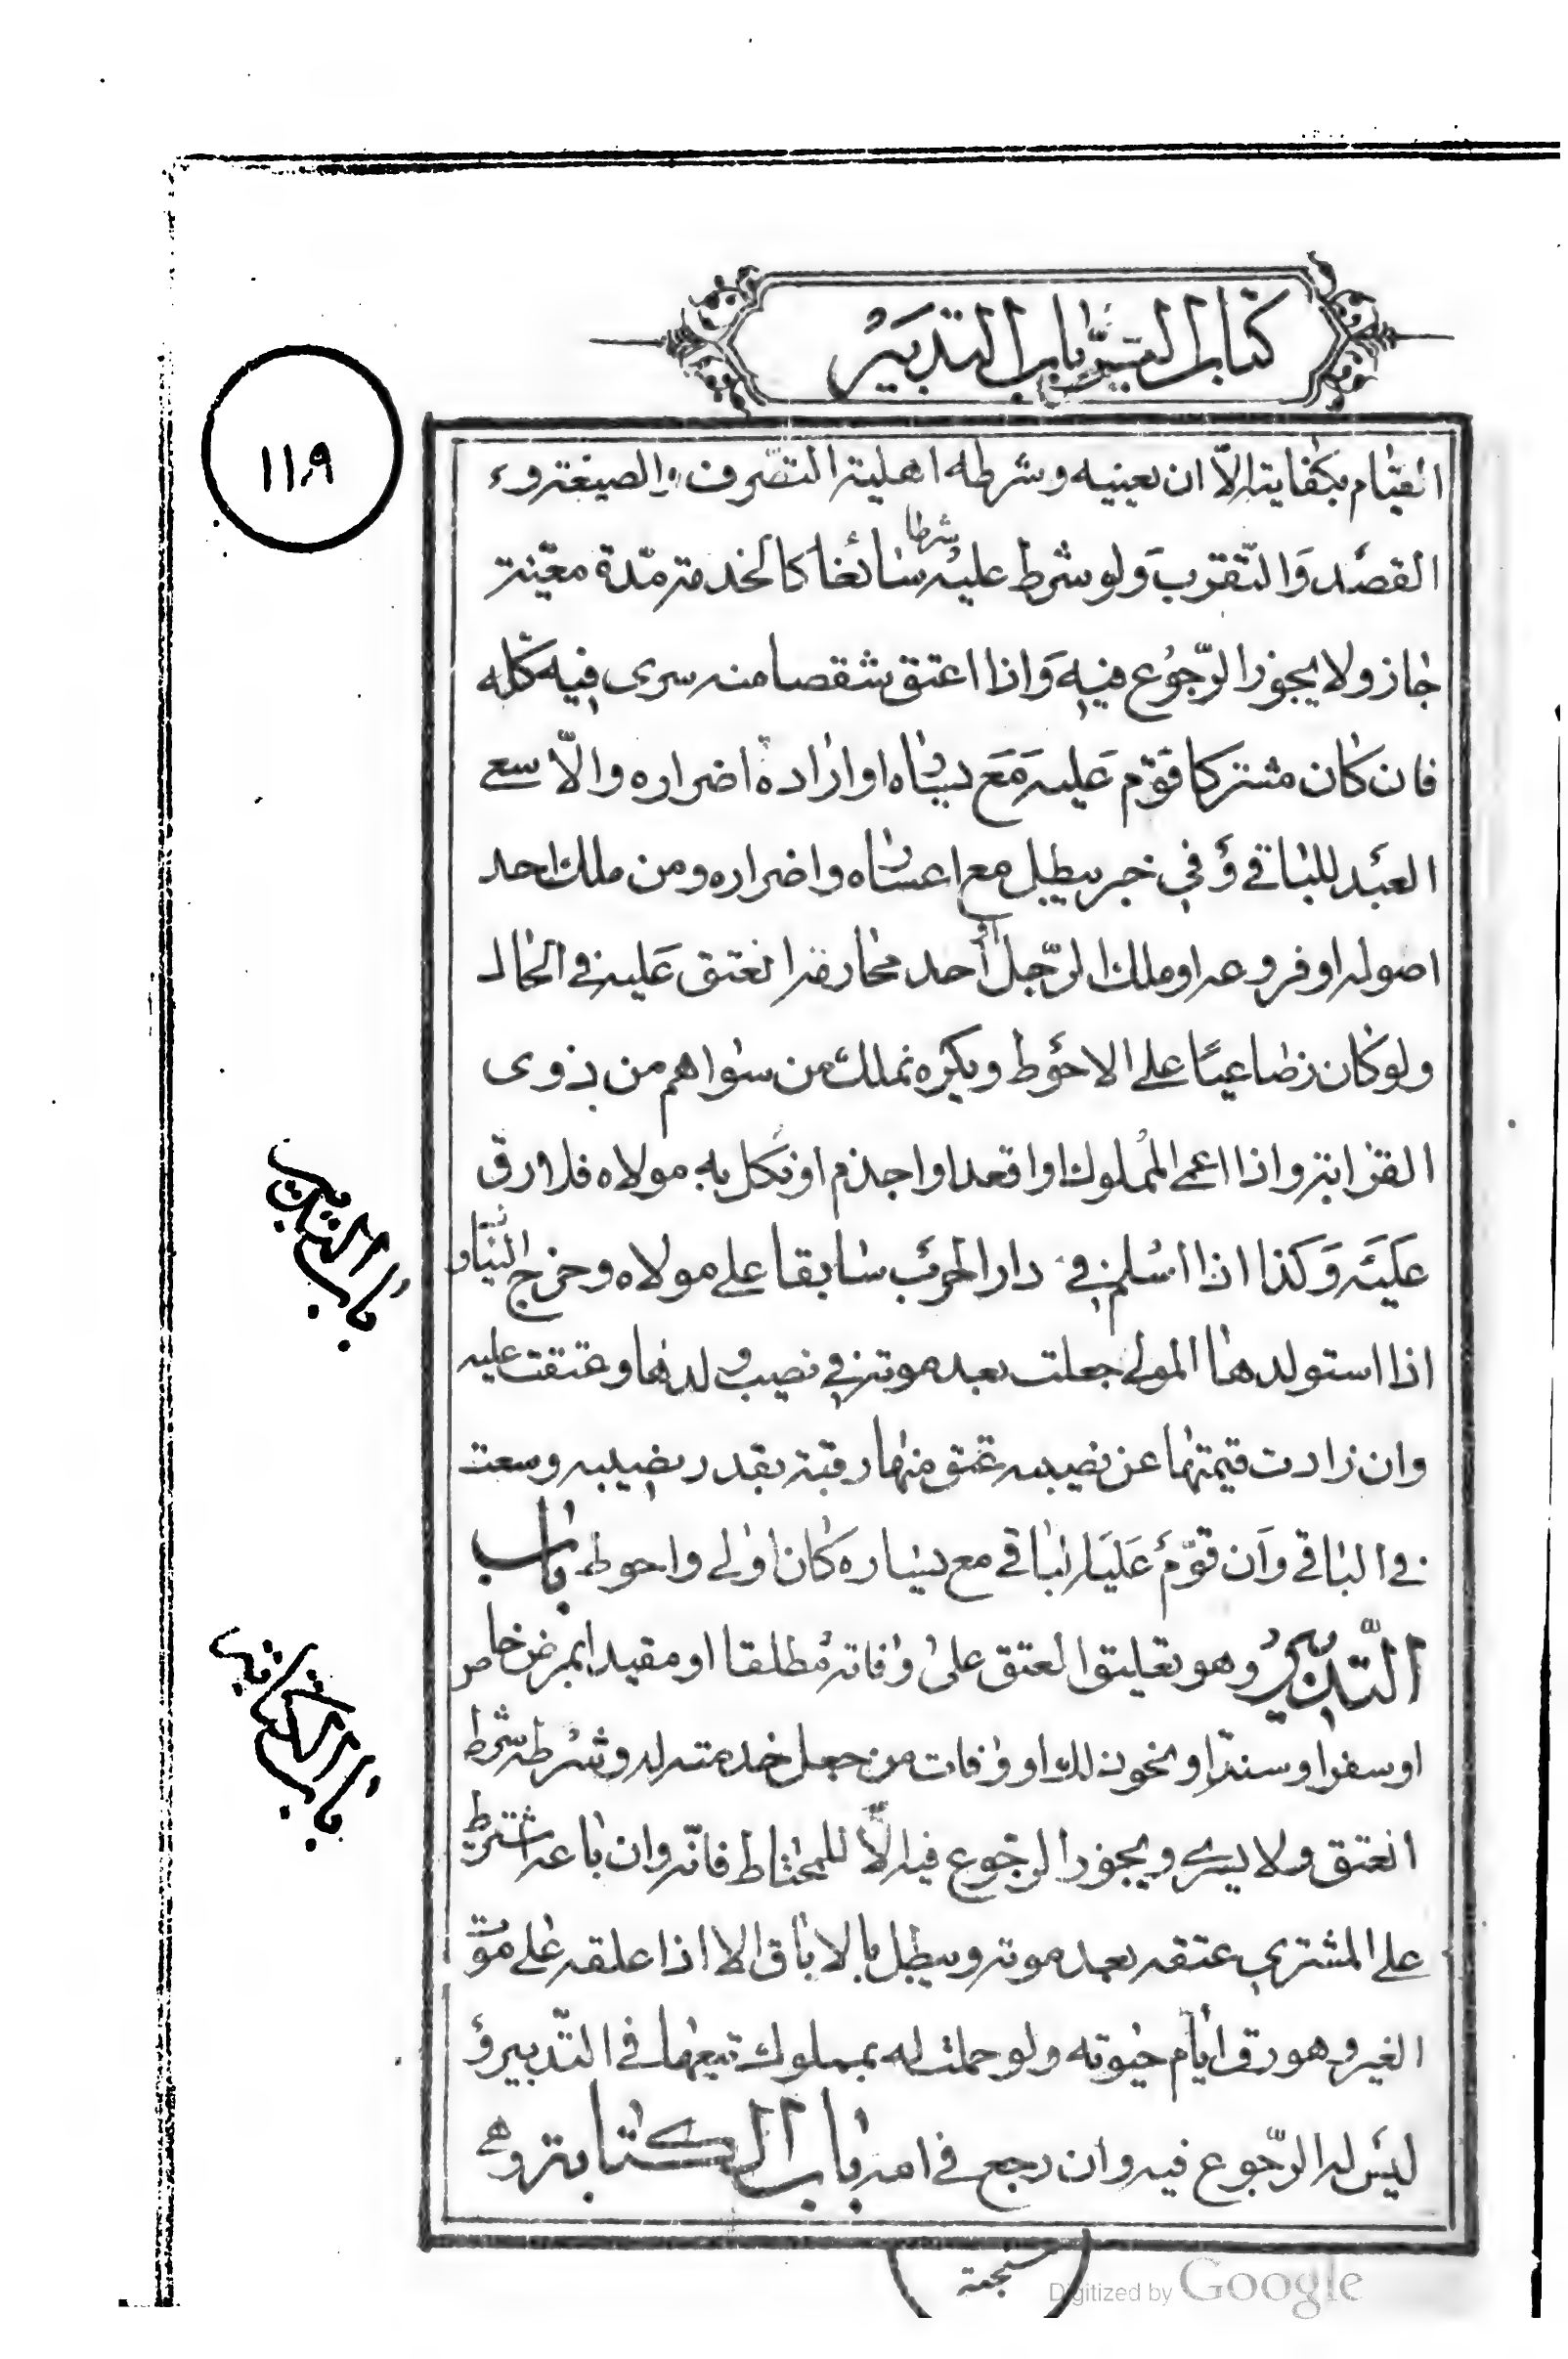 كتاب العتق باب التدبير
١١٩
القيام بكفايته الّا ان يعينه وشرطه اهلية التصرف والصيغة و
القصد والتّقرب ولو شرط عليه شرطا سائغا كالخدمة مدّة معيّنة
جاز ولا يجوز الرّجوع فيه واذا اعتق شقصا منه سرى فيه كلّه
فان كان مشتركا قوّم عليه مع يساره او ارادة اضراره والّا سعى
العبد للباقي وفي خبر يبطل مع اعساره واضراره ومن ملك احد
اصوله او فروعه او ملك الرّجل أحد محارمه انعتق عليه في الحال
ولو كان رضاعيّا على الاحوط ويكره تملك من سواهم من ذوى
القرابة واذا اعمى المملوك او اقعد او اجذم او نكل به مولاه فلا رق
عليه وكذا اذا اسلم في دار الحرب سابقا على مولاه وخرج الينا و
اذا استولدها المولى جعلت بعد موته في نصيب ولدها وعتقت عليه
وان زادت قيمتها عن نصيبه عتق منها رقبة بقدر نصيبه وسعت
في الباقي وان قوّم عليه الباقي مع يساره كان اولى واحوط باب
التّدبير وهو تعليق العتق على وفاته مطلقا او مقيدا بمرض خاص
او سفر او سنة او نحو ذلك او وفات من جعل خدمته له وشرطه شرط
العتق ولا يسرى ويجوز الرّجوع فيه الّا للمحتاط فانّه وان باعه اشترط
على المشترى عتقه بعد موته ويبطل بالاباق الا اذا علقه على موت
الغير وهو رق ايّام حيوته ولو حملت له بمملوك تبعها في التّدبير و
ليس له الرّجوع فيه وان رجع في امه باب الكتابة وهى
باب التدبير
باب الكتابة
Digitized by Google